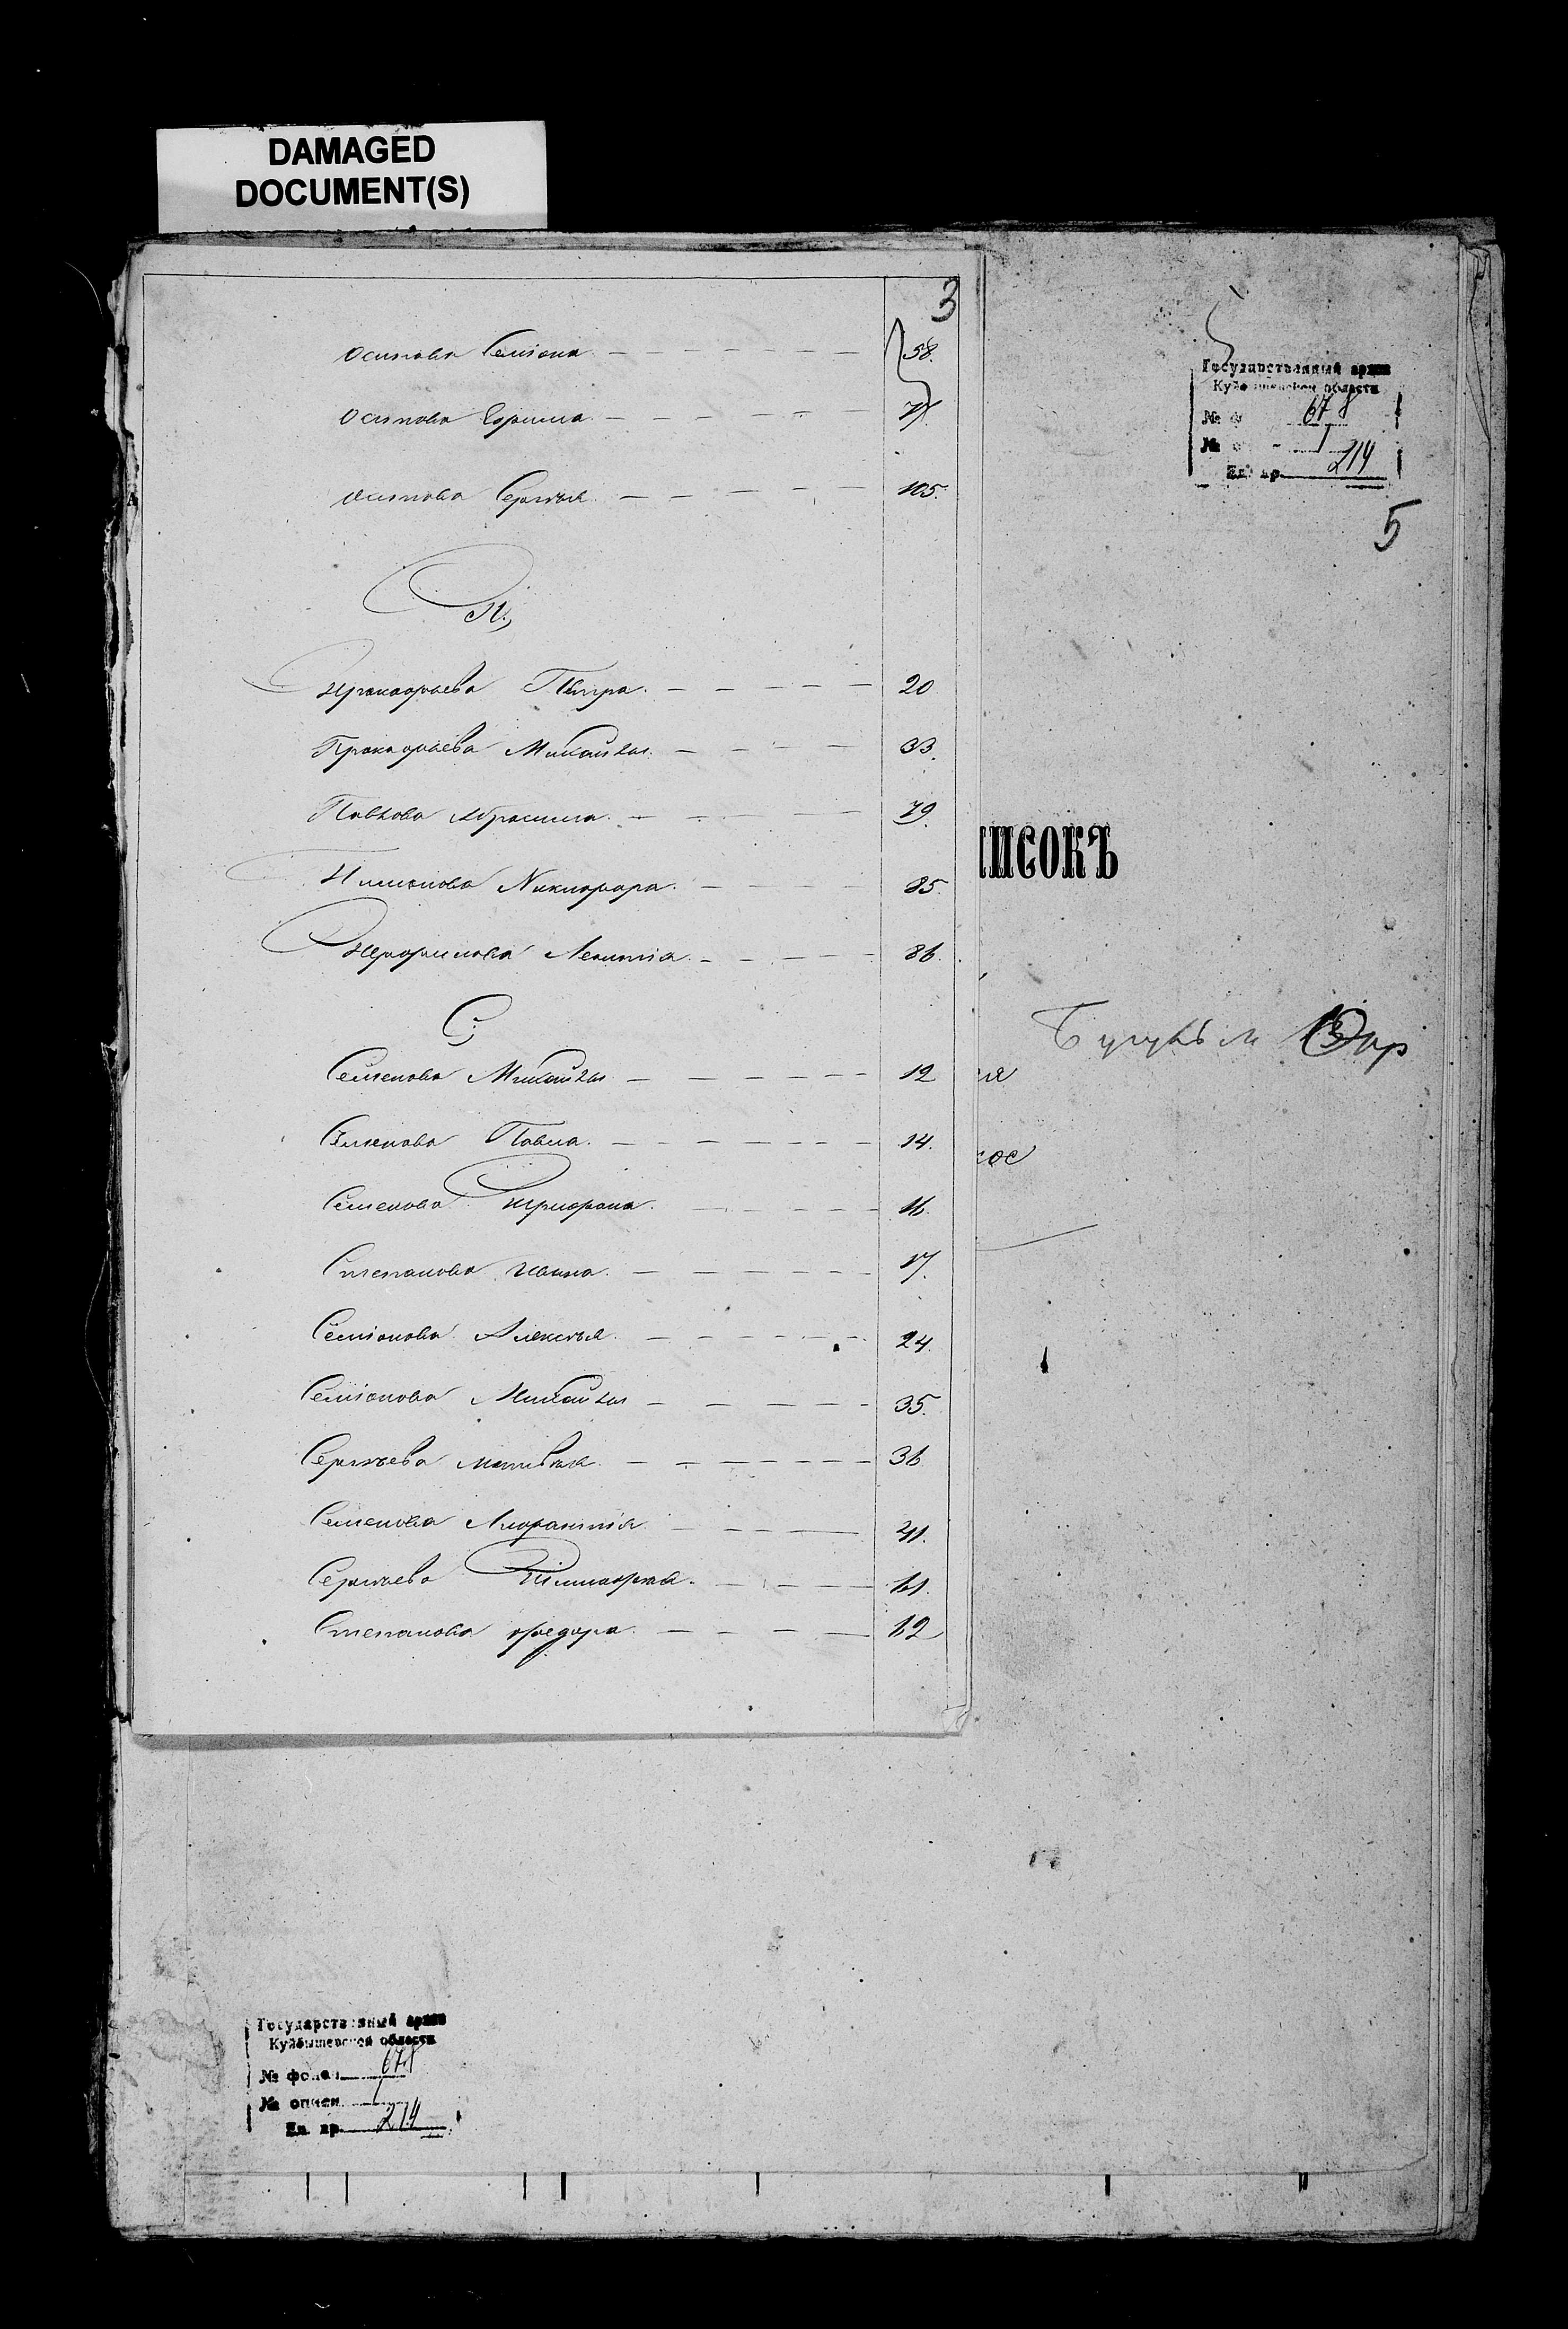 DAMAGED
DOCUMENT(S)
3
Осипова Семiона 58.
Осипова Ефима 71.
Осипова Сергѣя 105.
П,
Прокофьева Петра. 20
Прокофьева Михайла. 33.
Павлова Абрамма. 79.
Пимонова Никифора. 85.
Перфилова Леонтiя. 86.
С;
Семенова Михайла 12
Семенова Павла. 14.
Семенова Трифона. 16.
Степанова Ивана. 17.
Семiонова Алексѣя. 24.
Семiонова Михайла 35.
Сергѣева Матвѣя. 36
Семенова Лаврентiя. 41.
Сергѣева Тимофея. 61.
Степанова Федора. 62
Государственный архив
Куйбышевской области
№ ф 678
№ о 1
Ед. хр. 214
5
ПИСОКЪ
ия
кое
Государственный архив
Куйбышевской области
№ фонд 678
№ описи 1
Ед. хр. 214